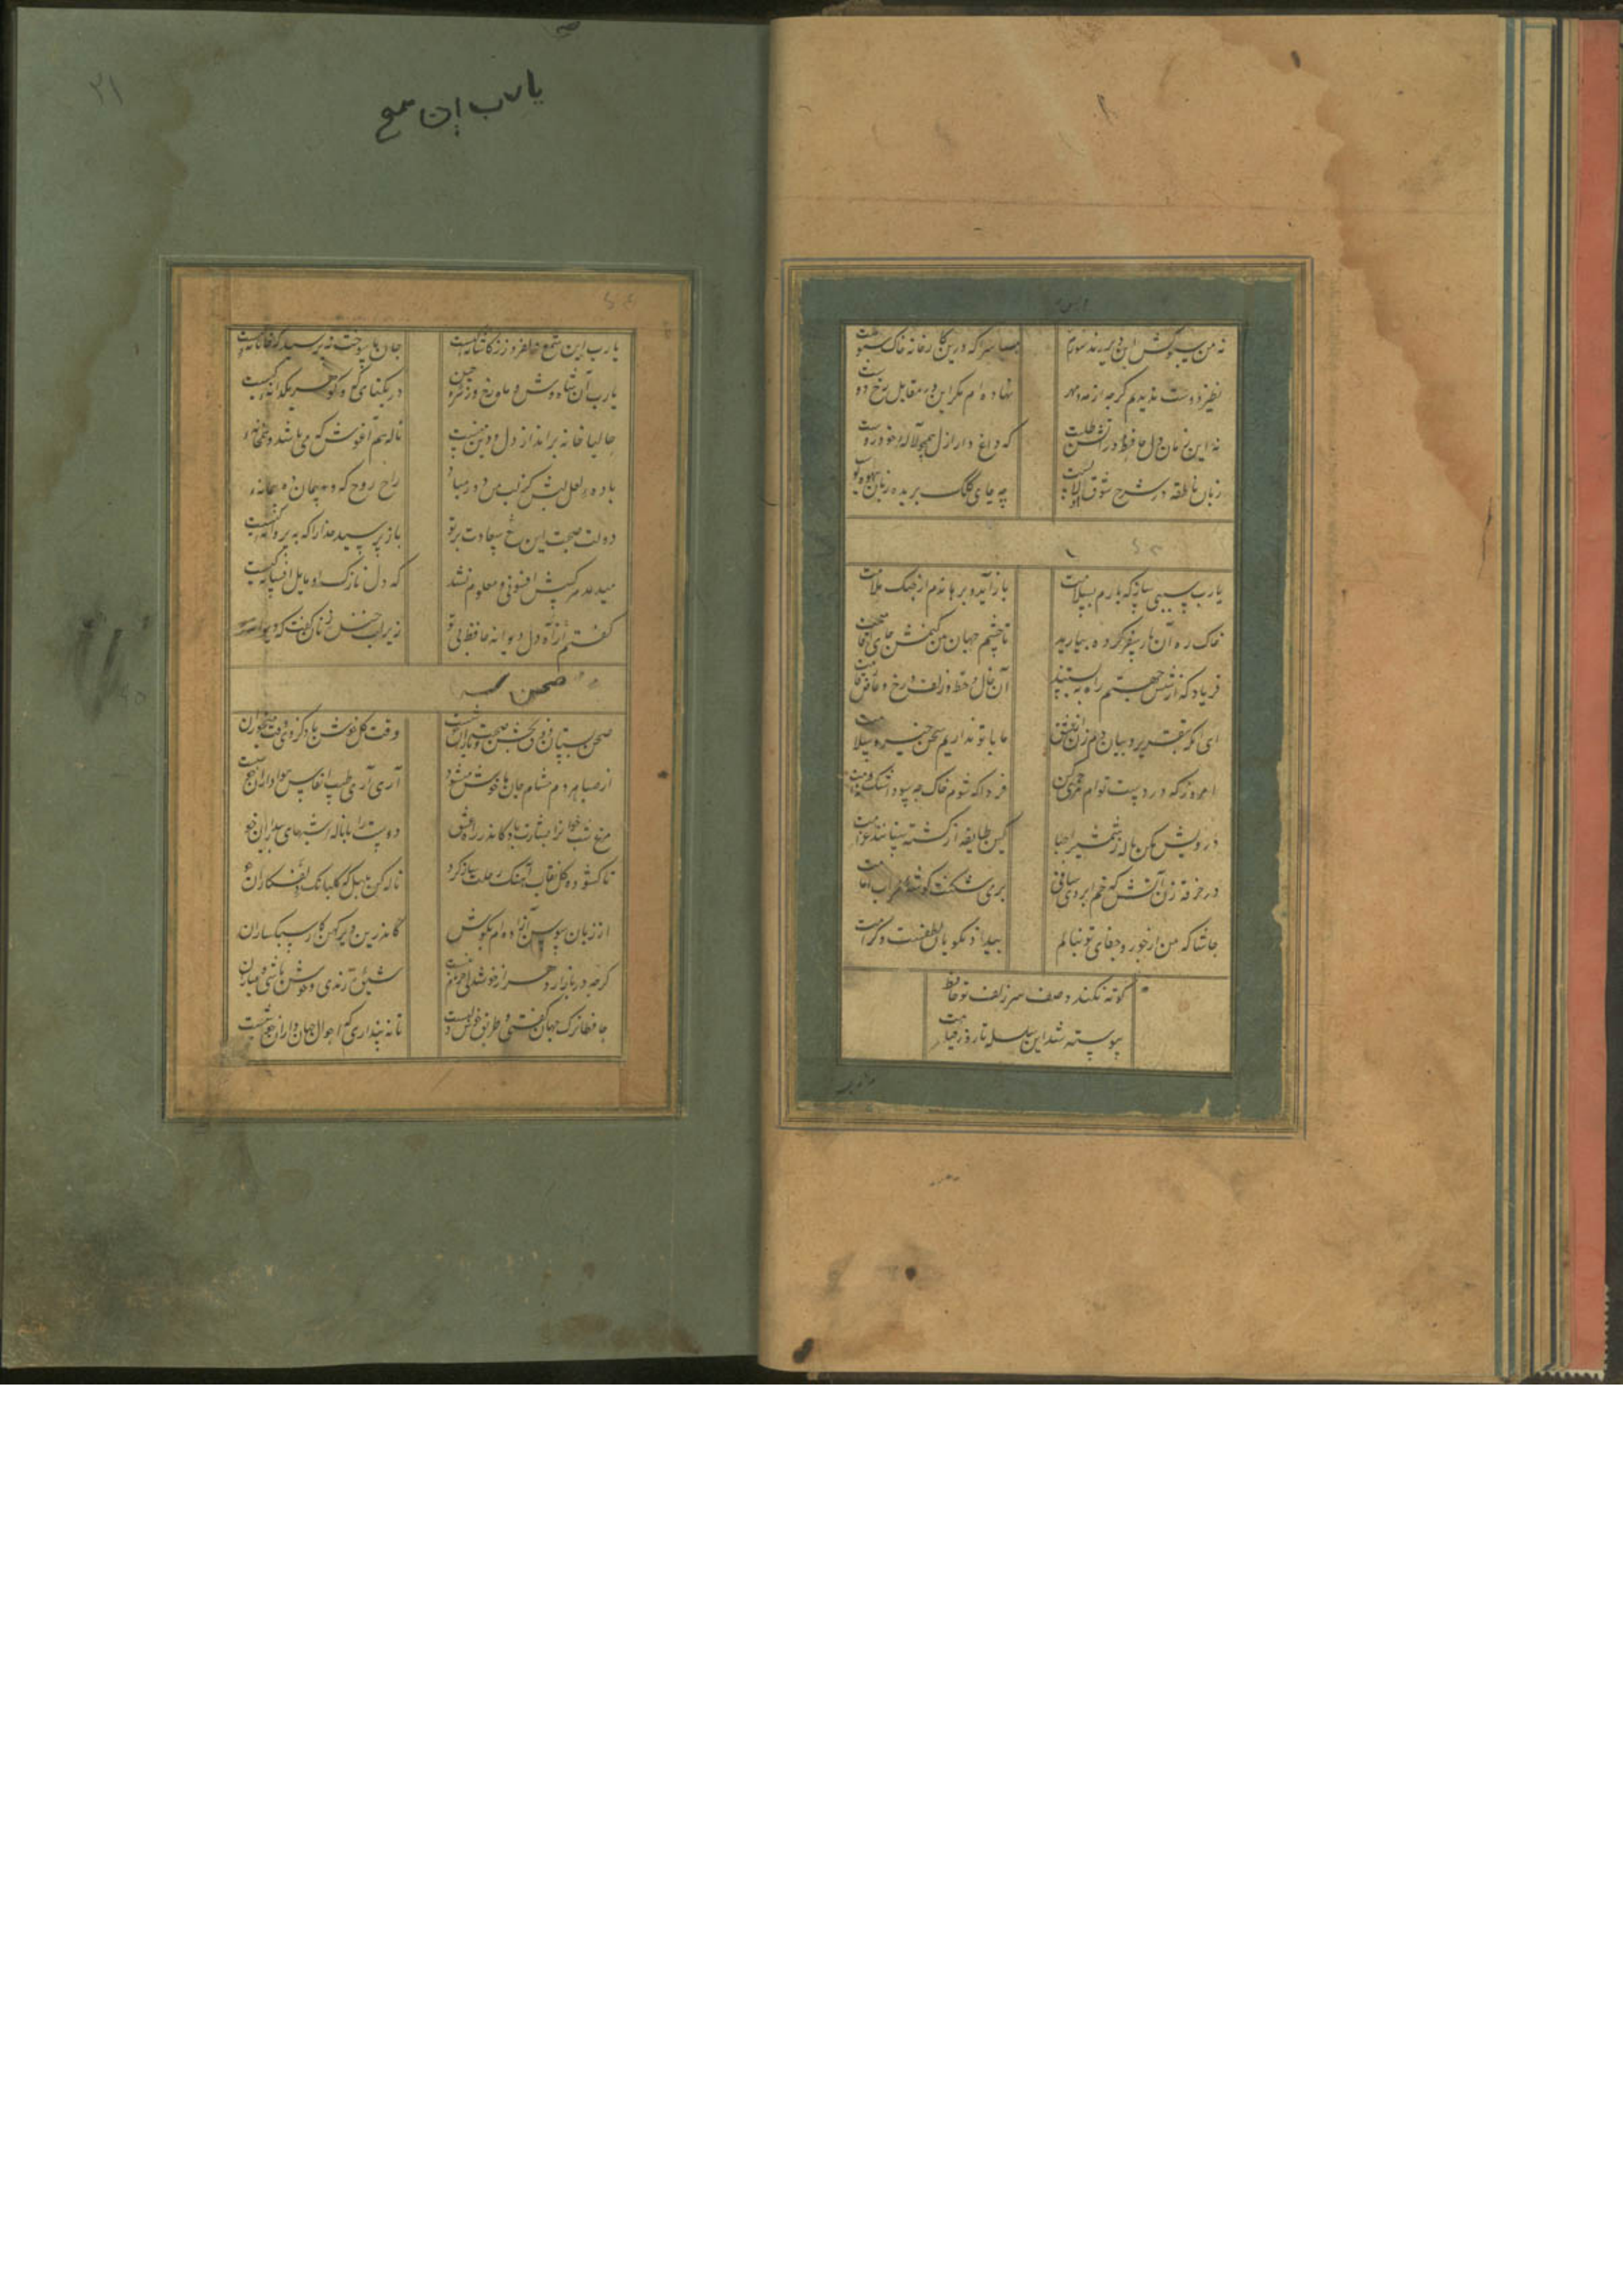 نه من سبوکش این دیر رندسوزم و بس
بسا سرا که درین کارخانه خاک سبوست
نظیر دوست ندیدم گرچه از مه و مهر
نهاده‌ام مگر این در مقابل رخ دوست
نه این زمان دل حافظ در آتش طلبست
که داغ دار ازل همچو لاله خودروست
زبان ناطقه در شرح شوق او لالست
چه جای کلک بریده زبان بیهوده گوست
یارب سببی ساز که یارم بسلامت
باز آید و برهاندم از چنگ ملامت
خاک ره آن یار سفر کرده بیارید
تا چشم جهان بین کنمش جای اقامت
فریاد که از شش جهتم راه ببستند
آن خال و خط و زلف و رخ و عارض و قامت
ای آنکه بتقریر و بیان دم زنی از عشق
ما با تو نداریم سخن خیر و سلامت
امروز که در دست توام مرحمتی کن
فردا که شوم خاک چه سود اشک ندامت
درویش مکن ناله ز شمشیر احبا
کین طایفه از کشته ستانند غرامت
در خرقه زن آتش که خم ابروی ساقی
بر می‌شکند گوشه محراب امامت
حاشا که من از جور و جفای تو بنالم
بیداد نکویان همه لطفست و کرامت
کوته نکند وصف سر زلف تو حافظ
پیوسته شد این سلسله تا روز قیامت
۲۱
یارب این شمع
یارب این شمع دلفروز ز کاشانه کیست
جان ما سوخت نپرسید که جانانه کیست
یارب آن شاه وش و ماه رخ و زهره جبین
در یکتای که و گوهر یکدانه کیست
حالیا خانه برانداز دل و دین منست
تا هم آغوش که می‌باشد و همخانه
باده لعل لبش کز لب من دور مباد
راح روح که و پیمان ده پیمانه
دولت صحبت این شمع سعادت پرتو
باز پرسید خدا را که به پروانه کیست
میدمد هر کسش افسونی و معلوم نشد
که دل نازک او مایل افسانه کیست
گفتم آه از دل دیوانه حافظ بی تو
زیر لب خنده زنان گفت که دیوانه
صحن
صحن بستان ذوق بخش و صحبت یاران خوشست
وقت گل خوش باد کز وی وقت میخواران
از صبا هر دم مشام جان ما خوش میشود
آری آری طیب انفاس هواداران خوشست
مرغ شب خوان را بشارت باد کاندر راه عشق
دوست را با ناله شبهای بیداران خوش
ناگشوده گل نقاب آهنگ رحلت ساز کرد
ناله کن بلبل که گلبانگ دل افکاران
از زبان سوسن آزاده‌ام آمد بگوش
کاندرین دیر کهن کار سبکساران
گرچه در بازار دهر از خوشدلی جز نام نیست
شیوه رندی و خوش باشی عیاران
حافظا ترک جهان گفتن طریق خوشدلیست
تا نپنداری که احوال جهانداران خوشست